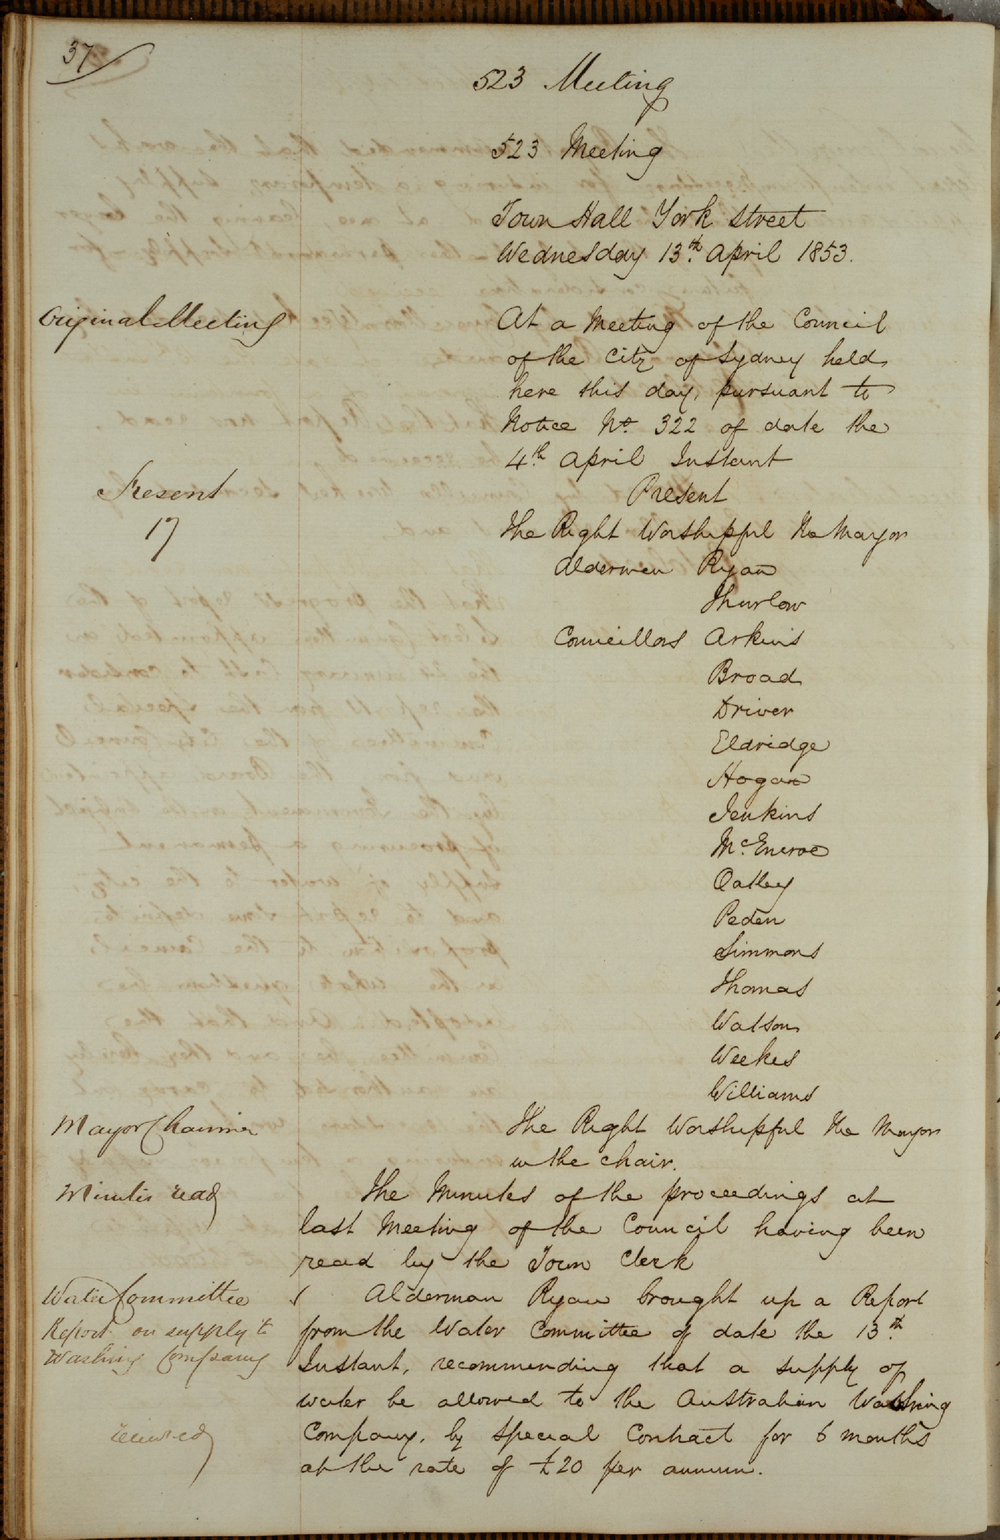 37
523 Meeting
523 Meeting
Town Hall York Street
Wednesday 13th April 1853.
Original Meeting
At a Meeting of the Council
of the City of Sydney held
here this day, pursuant to
Notice No. 322 of date the
4th April Instant
Present
17
Present
The Right Worshipful the Mayor
Aldermen Ryan
Thurlow
Councillors Arkins
Broad
Driver
Eldridge
Hogan
Jenkins
McEncroe
Oatley
Peden
Simmons
Thomas
Watson
Weekes
Williams
Mayor Chairman
The Right Worshipful the Mayor
in the chair.
Minutes read
The Minutes of the proceedings at
last Meeting of the Council having been
read by the Town Clerk
Water Committee
Report on supply to
Washing Company
received
1 Alderman Ryan brought up a Report
from the Water Committee of date the 13th
Instant, recommending that a supply of
water be allowed to the Australian Washing
Company, by Special Contract for 6 months
at the rate of £20 per annum.